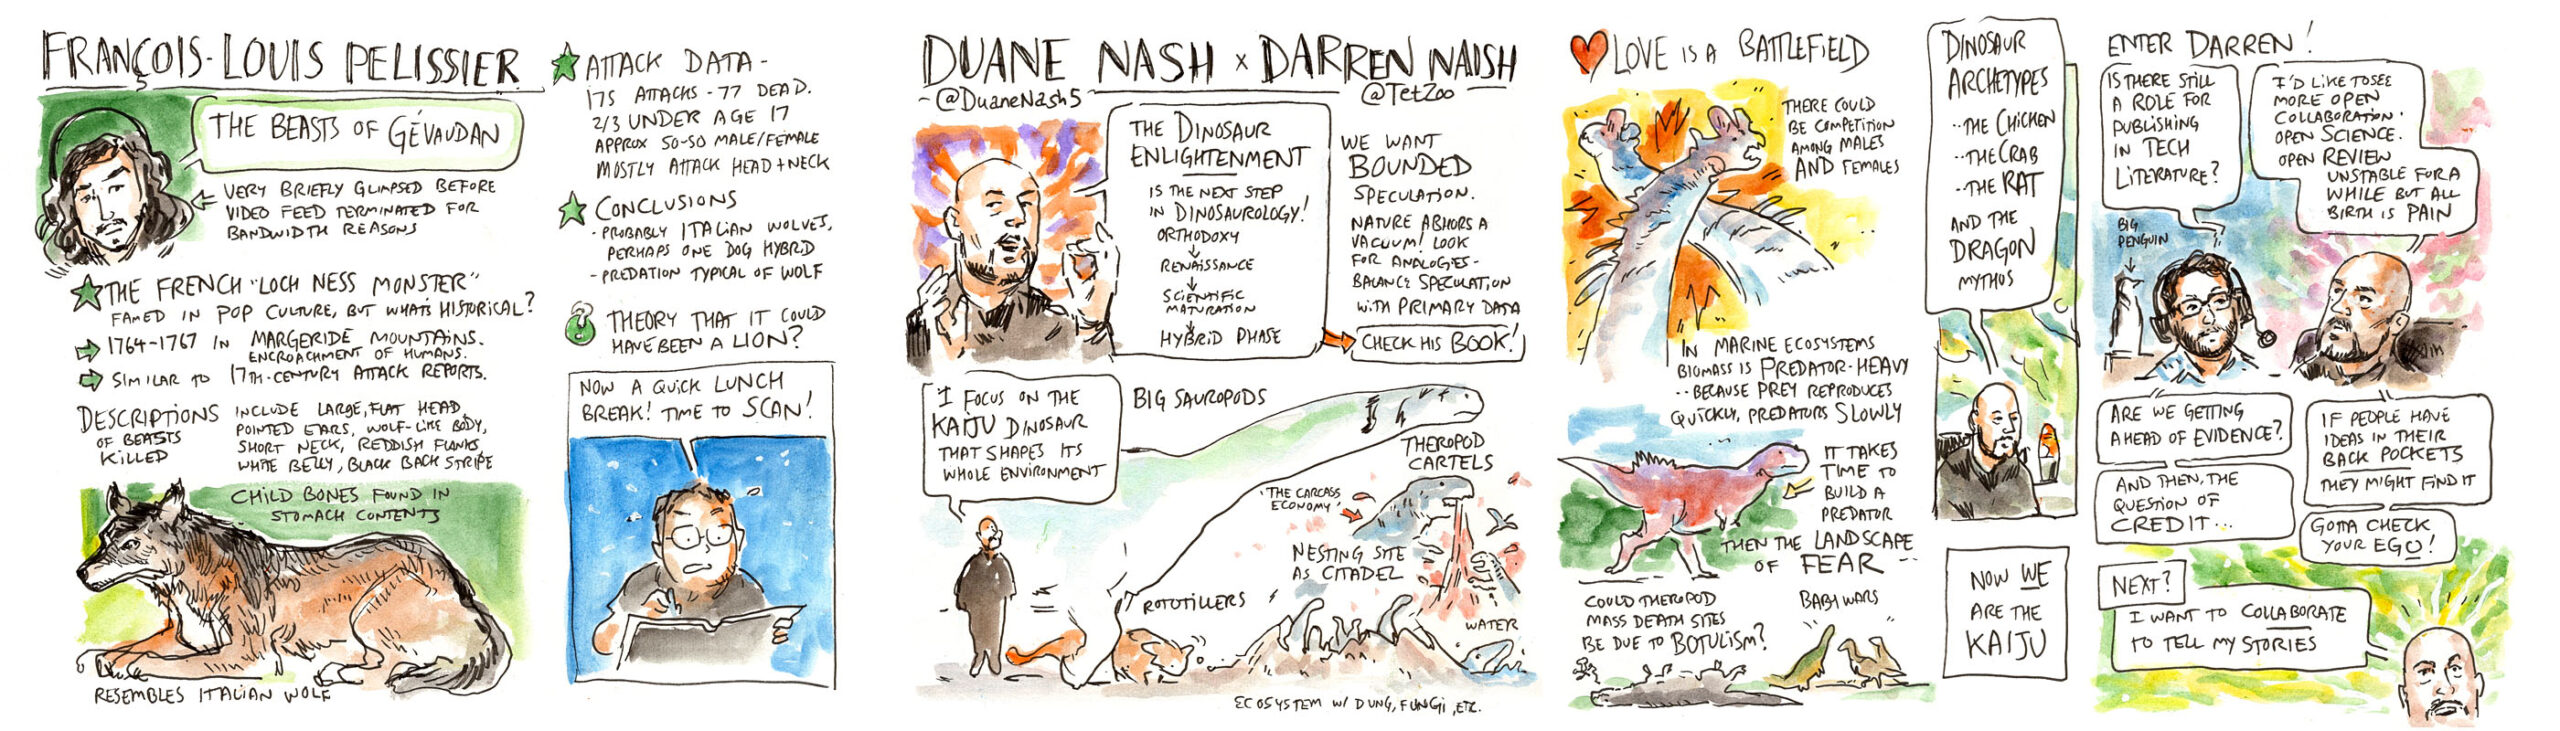 FRANÇOIS-LOUIS PELISSIER
THE BEASTS OF GÉVAUDAN
VERY BRIEFLY GLIMPSED BEFORE
VIDEO FEED TERMINATED FOR
BANDWIDTH REASONS
THE FRENCH "LOCH NESS MONSTER"
FAMED IN POP CULTURE, BUT WHAT'S HISTORICAL?
1764-1767 IN MARGERIDE MOUNTAINS.
ENCROACHMENT OF HUMANS.
SIMILAR TO 17TH-CENTURY ATTACK REPORTS.
DESCRIPTIONS
OF BEASTS
KILLED
INCLUDE LARGE, FLAT HEAD,
POINTED EARS, WOLF-LIKE BODY,
SHORT NECK, REDDISH FLANKS,
WHITE BELLY, BLACK BACK STRIPE
CHILD BONES FOUND IN
STOMACH CONTENTS
RESEMBLES ITALIAN WOLF
ATTACK DATA -
175 ATTACKS - 77 DEAD.
2/3 UNDER AGE 17
APPROX 50-50 MALE/FEMALE
MOSTLY ATTACK HEAD + NECK
CONCLUSIONS
- PROBABLY ITALIAN WOLVES,
PERHAPS ONE DOG HYBRID
- PREDATION TYPICAL OF WOLF
?
THEORY THAT IT COULD
HAVE BEEN A LION?
NOW A QUICK LUNCH
BREAK! TIME TO SCAN!
DUANE NASH x DARREN NAISH
@DuaneNash5
@TetZoo
THE DINOSAUR
ENLIGHTENMENT
IS THE NEXT STEP
IN DINOSAUROLOGY!
ORTHODOXY
RENAISSANCE
SCIENTIFIC
MATURATION
HYBRID PHASE
WE WANT
BOUNDED
SPECULATION.
NATURE ABHORS A
VACUUM! LOOK
FOR ANALOGIES -
BALANCE SPECULATION
WITH PRIMARY DATA
CHECK HIS BOOK!
I FOCUS ON THE
KAIJU DINOSAUR
THAT SHAPES ITS
WHOLE ENVIRONMENT
BIG SAUROPODS
THEROPOD
CARTELS
'THE CARCASS
ECONOMY'
NESTING SITE
AS CITADEL
ROTOTILLERS
WATER
ECOSYSTEM W/ DUNG, FUNGI, ETC.
LOVE IS A BATTLEFIELD
THERE COULD
BE COMPETITION
AMONG MALES
AND FEMALES
IN MARINE ECOSYSTEMS
BIOMASS IS PREDATOR-HEAVY
-- BECAUSE PREY REPRODUCES
QUICKLY, PREDATORS SLOWLY
IT TAKES
TIME TO
BUILD A
PREDATOR
THEN THE LANDSCAPE
OF FEAR --
COULD THEROPOD
MASS DEATH SITES
BE DUE TO BOTULISM?
BABY WARS
DINOSAUR
ARCHETYPES
-- THE CHICKEN
-- THE CRAB
-- THE RAT
AND THE
DRAGON
MYTHOS
NOW WE
ARE THE
KAIJU
ENTER DARREN!
IS THERE STILL
A ROLE FOR
PUBLISHING
IN TECH
LITERATURE?
I'D LIKE TO SEE
MORE OPEN
COLLABORATION.
OPEN SCIENCE.
OPEN REVIEW
UNSTABLE FOR A
WHILE BUT ALL
BIRTH IS PAIN
BIG
PENGUIN
ARE WE GETTING
AHEAD OF EVIDENCE?
AND THEN, THE
QUESTION OF
CREDIT...
IF PEOPLE HAVE
IDEAS IN THEIR
BACK POCKETS
THEY MIGHT FIND IT
GOTTA CHECK
YOUR EGO!
NEXT?
I WANT TO COLLABORATE
TO TELL MY STORIES